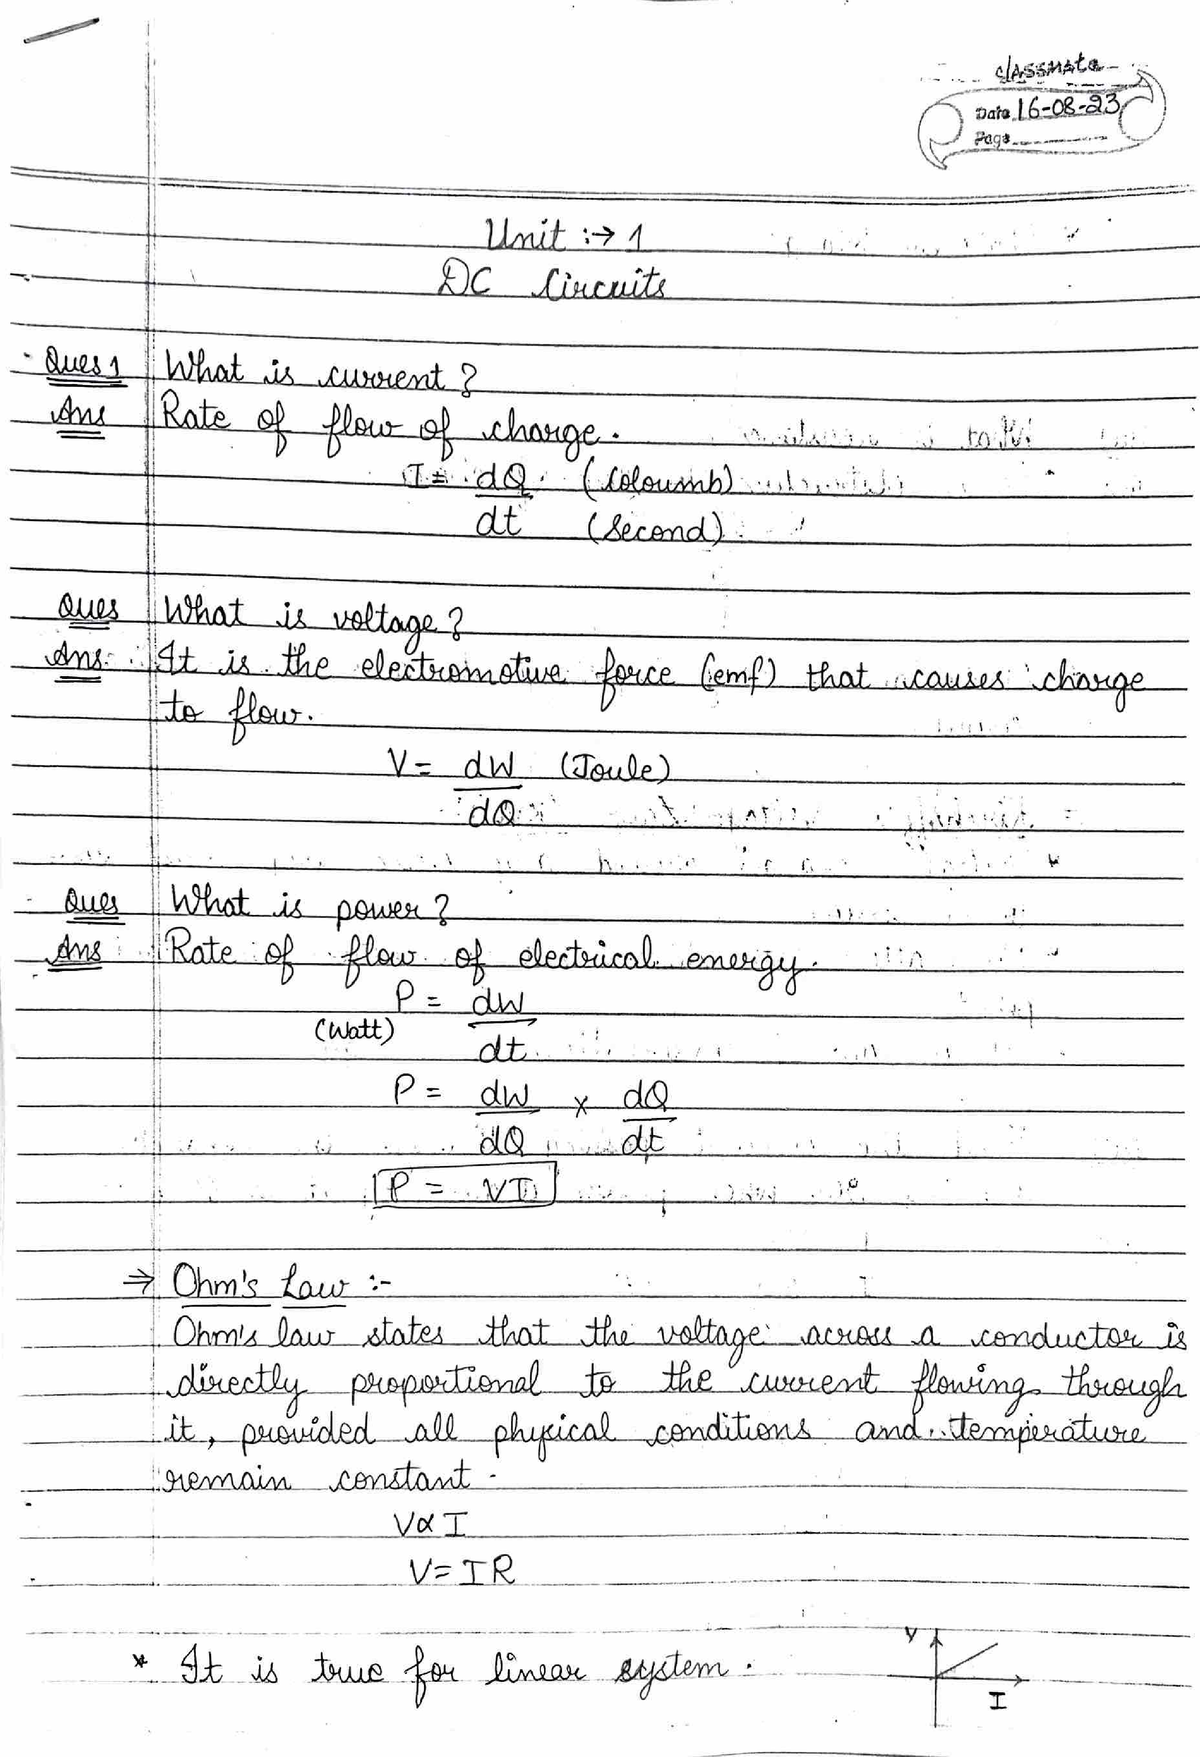 classmate
Date 16-08-23
Page
Unit :→ 1
DC Circuits
Ques 1 What is current?
Ans Rate of flow of charge.
I = dQ (Coloumb)
dt (Second)
Ques What is voltage?
Ans It is the electromotive force (emf) that causes charge
to flow.
V = dW (Joule)
dQ
Ques What is power?
Ans Rate of flow of electrical energy.
P = dW
(Watt)
dt
P = dW × dQ
dQ dt
P = VI
⇒ Ohm's Law :-
Ohm's law states that the voltage across a conductor is
directly proportional to the current flowing through
it, provided all physical conditions and temperature
remain constant.
V∝ I
V= IR
* It is true for linear system.
V
I